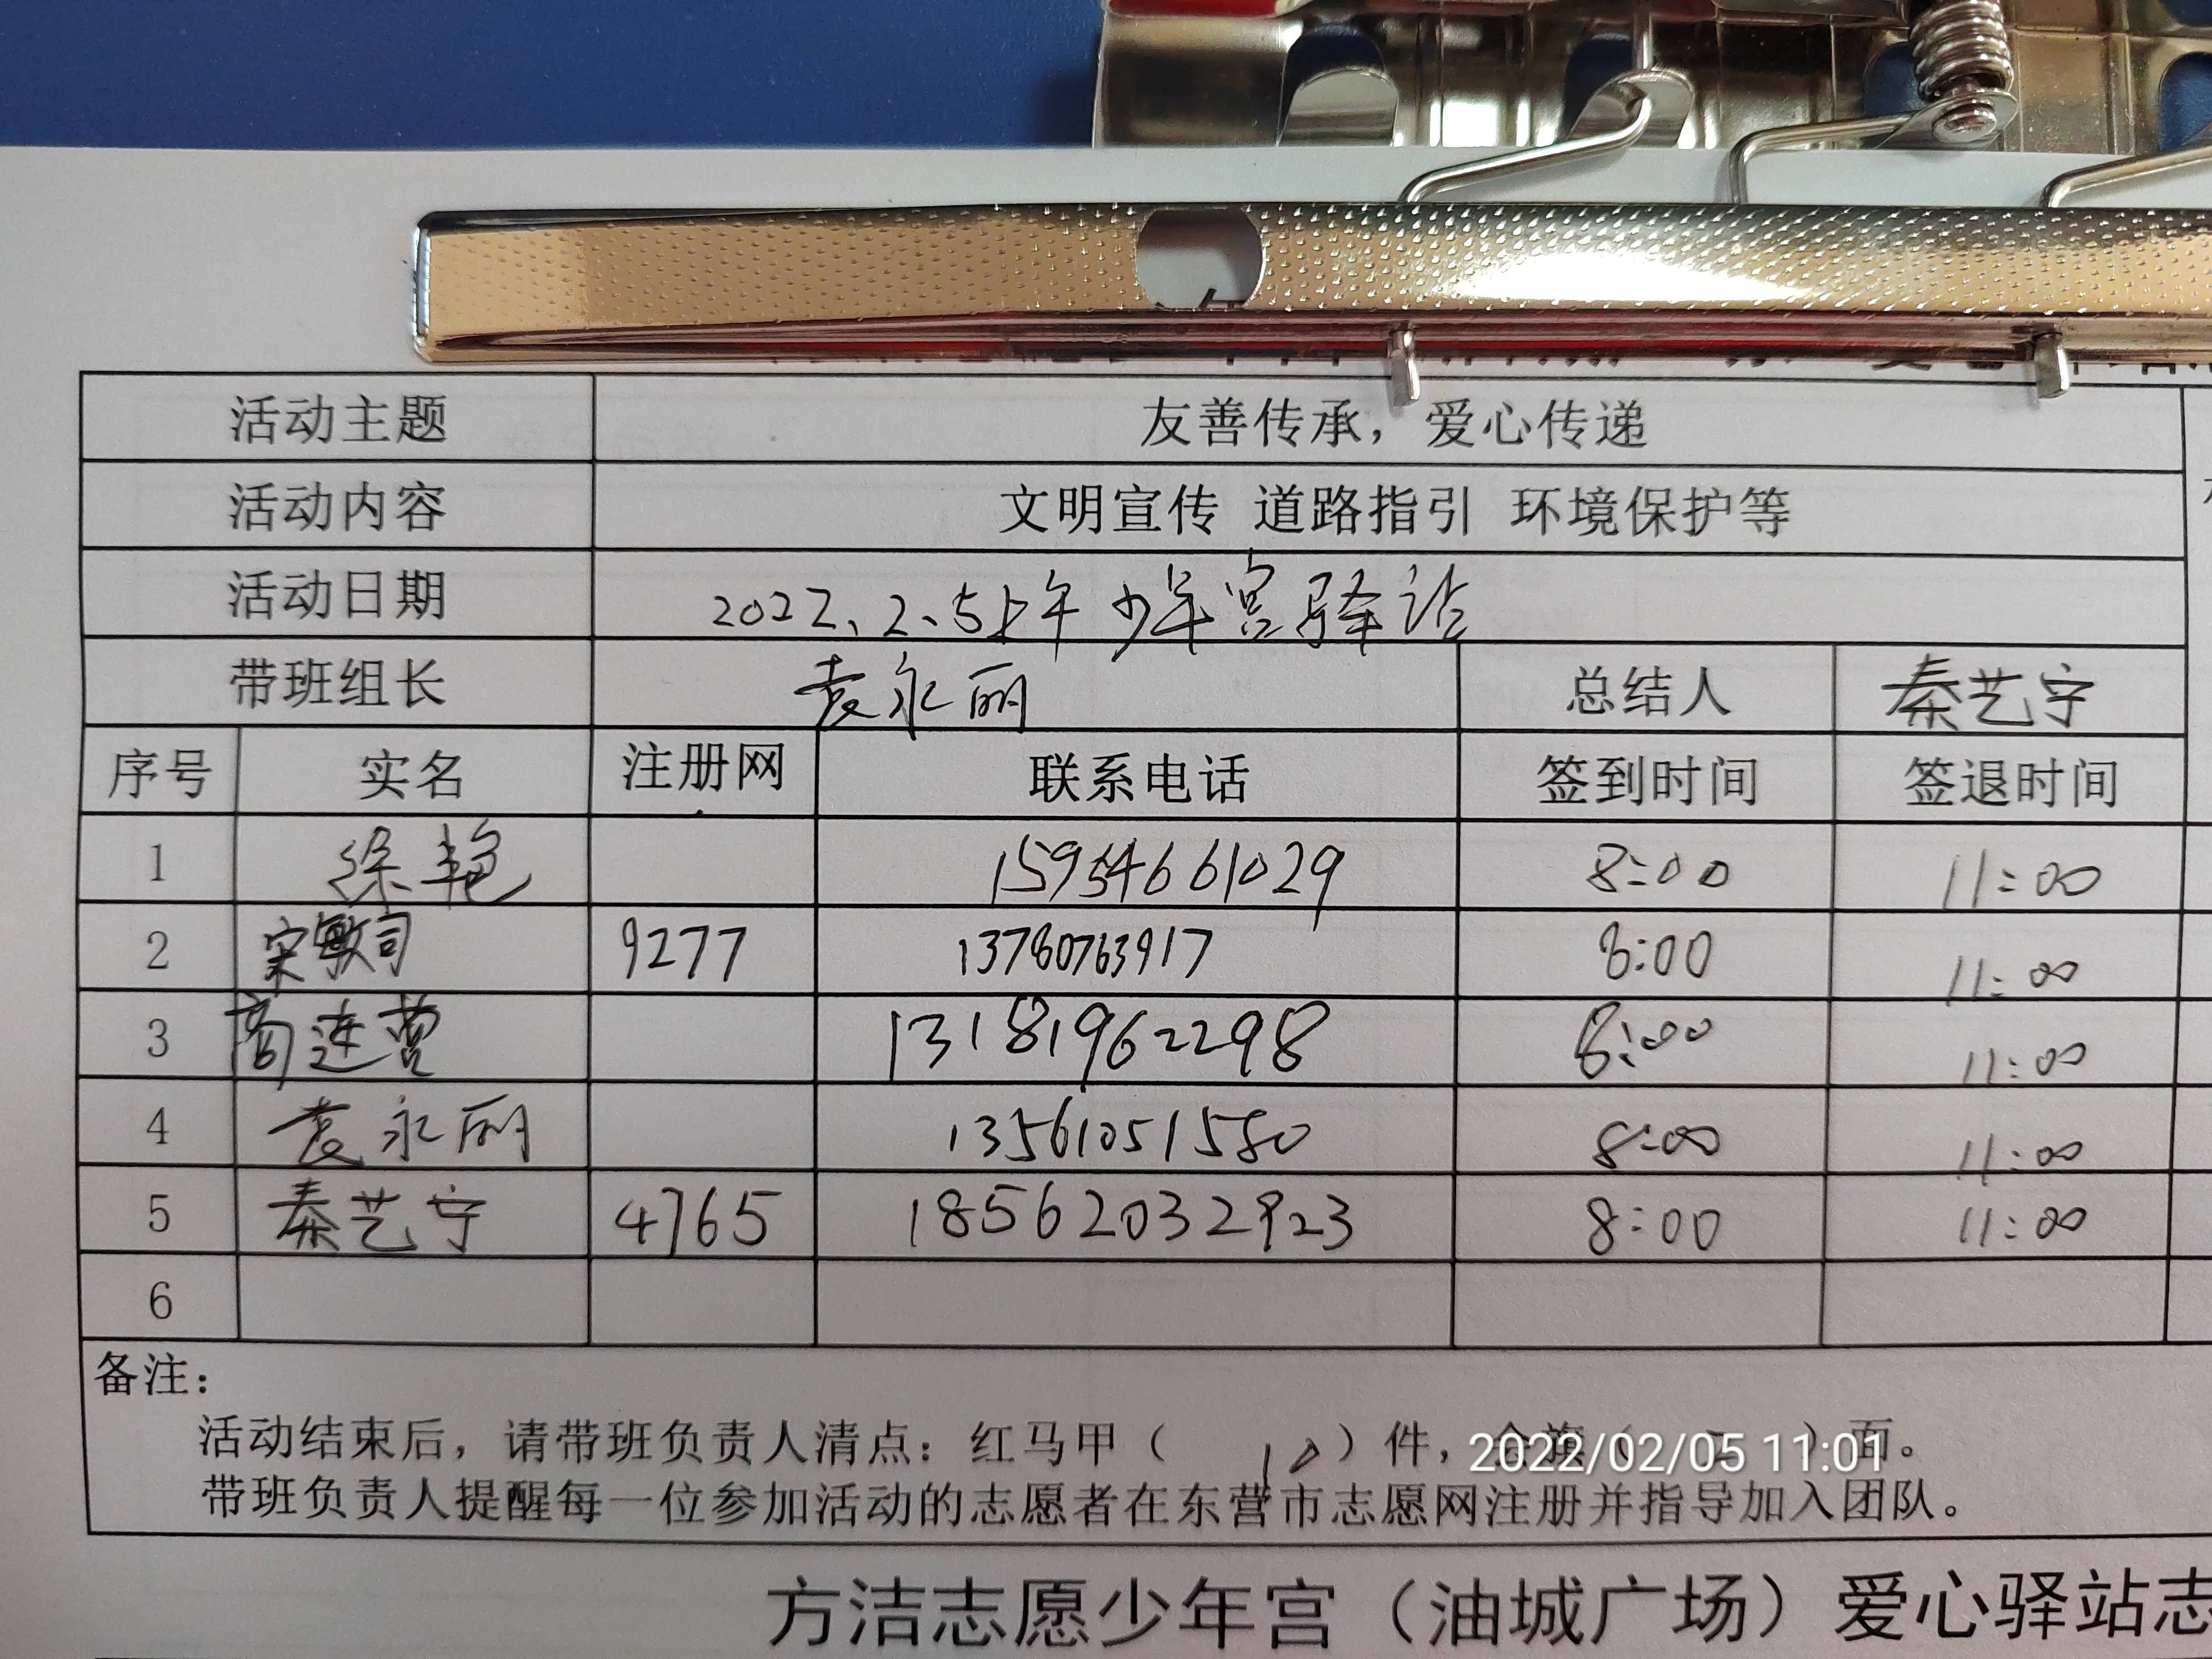 活动主题 友善传承，爱心传递
活动内容 文明宣传 道路指引 环境保护等
活动日期 2022、2、5上午 少年宫驿站
带班组长 袁永丽 总结人 秦艺宁
序号 实名 注册网 联系电话 签到时间 签退时间
1 徐艳 15954661029 8:00 11:00
2 宋敏司 9277 13780763917 8:00 11:00
3 高连营 13181962298 8:00 11:00
4 袁永丽 13561051580 8:00 11:00
5 秦艺宁 4765 18562032923 8:00 11:00
6
备注：
活动结束后，请带班负责人清点：红马甲（ 10 ）件，会旗（ ）面。
2022/02/05 11:01
带班负责人提醒每一位参加活动的志愿者在东营市志愿网注册并指导加入团队。
方洁志愿少年宫（油城广场）爱心驿站志